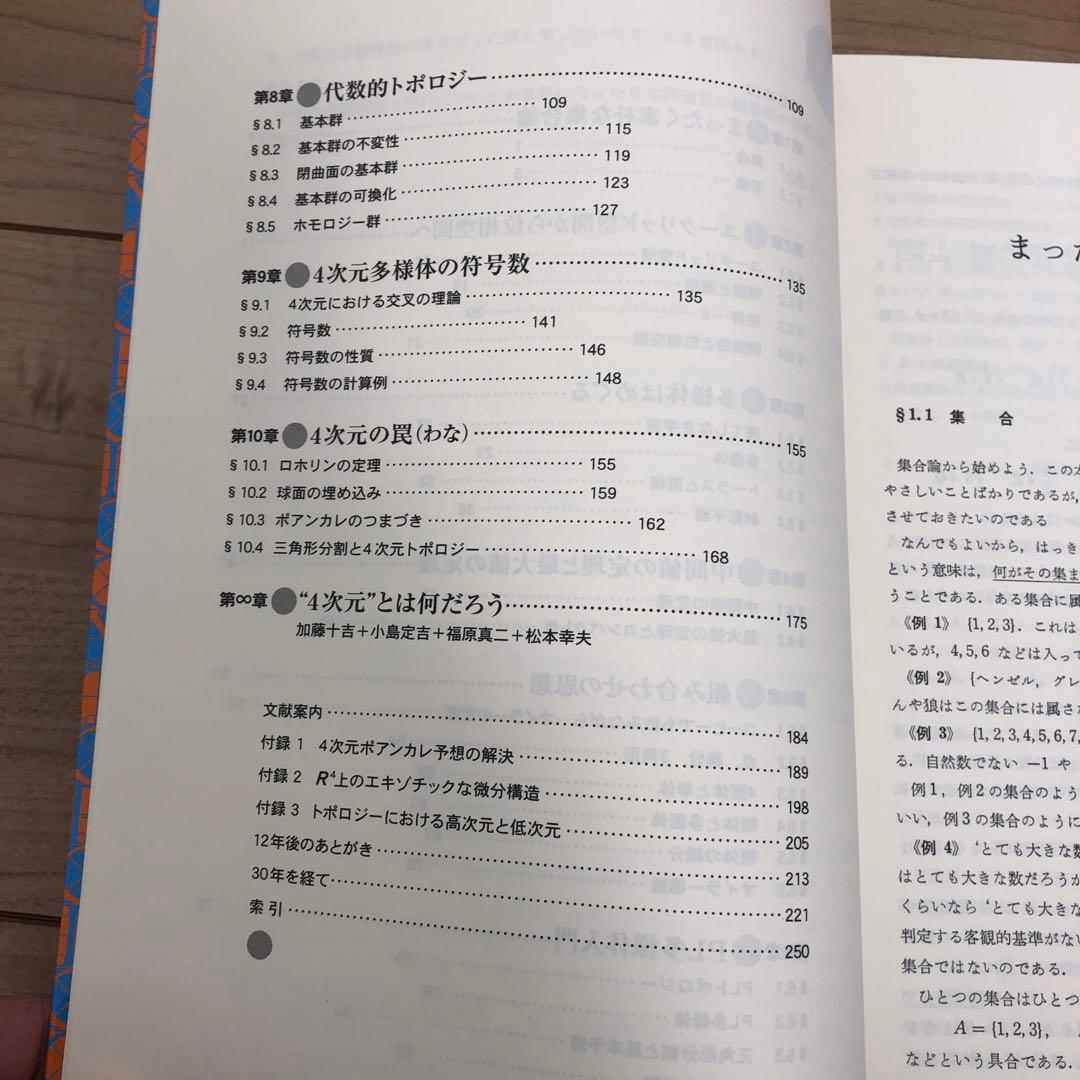 第8章 ●代数的トポロジー 109
§8.1 基本群 109
§8.2 基本群の不変性 115
§8.3 閉曲面の基本群 119
§8.4 基本群の可換化 123
§8.5 ホモロジー群 127
第9章 ●4次元多様体の符号数 135
§9.1 4次元における交叉の理論 135
§9.2 符号数 141
§9.3 符号数の性質 146
§9.4 符号数の計算例 148
第10章 ●4次元の罠(わな) 155
§10.1 ロホリンの定理 155
§10.2 球面の埋め込み 159
§10.3 ポアンカレのつまづき 162
§10.4 三角形分割と4次元トポロジー 168
第∞章 ●“4次元”とは何だろう 175
加藤十吉+小島定吉+福原真二+松本幸夫
文献案内 184
付録1 4次元ポアンカレ予想の解決 189
付録2 R⁴上のエキゾチックな微分構造 198
付録3 トポロジーにおける高次元と低次元 205
12年後のあとがき 213
30年を経て 221
索引 250
まった
§1.1 集 合
集合論から始めよう.このか
やさしいことばかりであるが,
させておきたいのである
なんでもよいから,はっき
という意味は,何がその集ま
うことである.ある集合に属
《例 1》 {1,2,3}.これは
いるが,4,5,6 などは入って
《例 2》 {ヘンゼル,グレ
んや狼はこの集合には属さな
《例 3》 {1,2,3,4,5,6,7,
る.自然数でない −1 や
例1,例2の集合のよう
いい,例3の集合のように
《例 4》 ‘とても大きな数
はとても大きな数だろうか
くらいなら ‘とても大きな
判定する客観的基準がない
集合ではないのである.
ひとつの集合はひとつ
A = {1,2,3},
などという具合である.